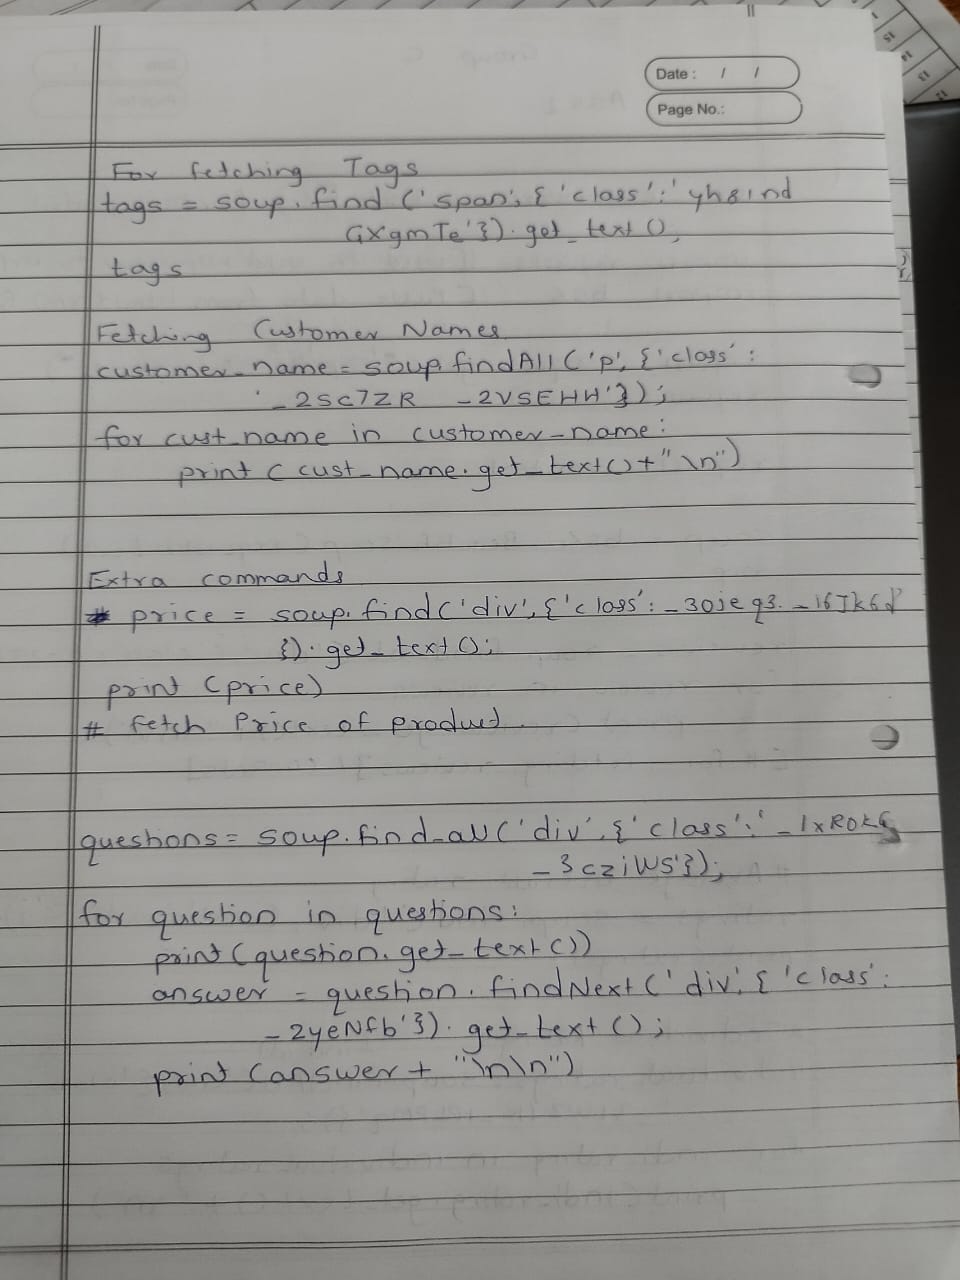 Date : / /
Page No.:
For fetching Tags
tags = soup.find ('span', { 'class':' yh8ind
GXgmTe'}).get_text (),
tags
Fetching Customer Names
customer_name = soup.findAll ('p', {'class' :
'_2sc7ZR _2VSEHH'});
for cust_name in customer_name:
print ( cust_name.get_text()+"\n")
Extra commands
# price = soup.find('div', {'class': _30jeq3. _16Jk6d
}).get_text();
print (price)
# Fetch Price of product.
questions = soup.find_all ('div', {'class':'_1xR0kG
_3cziWS'});
for question in questions:
print (question.get_text())
answer = question.findNext ('div', { 'class':
_2yeNfb'}).get_text ();
print (answer + "\n\n")